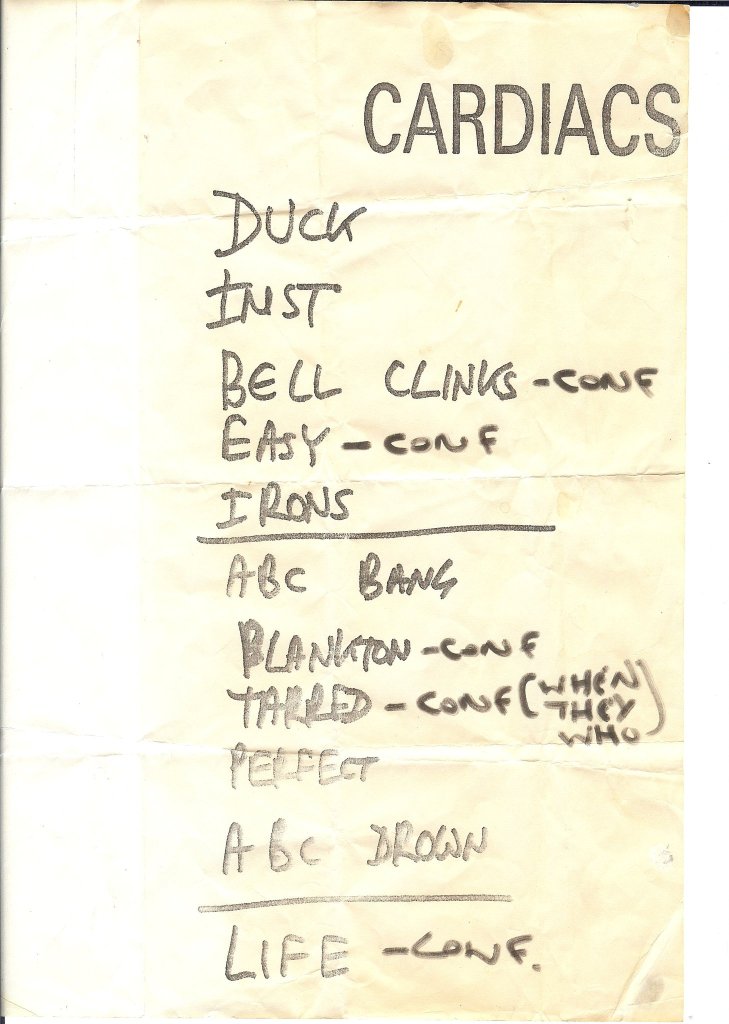 CARDIACS
DUCK
INST
BELL CLINKS - CONF
EASY - CONF
IRONS
ABC BANG
BLANKTON - CONF
TARRED - CONF (WHEN
THEY
WHO)
PERFECT
ABC DROWN
LIFE - CONF.